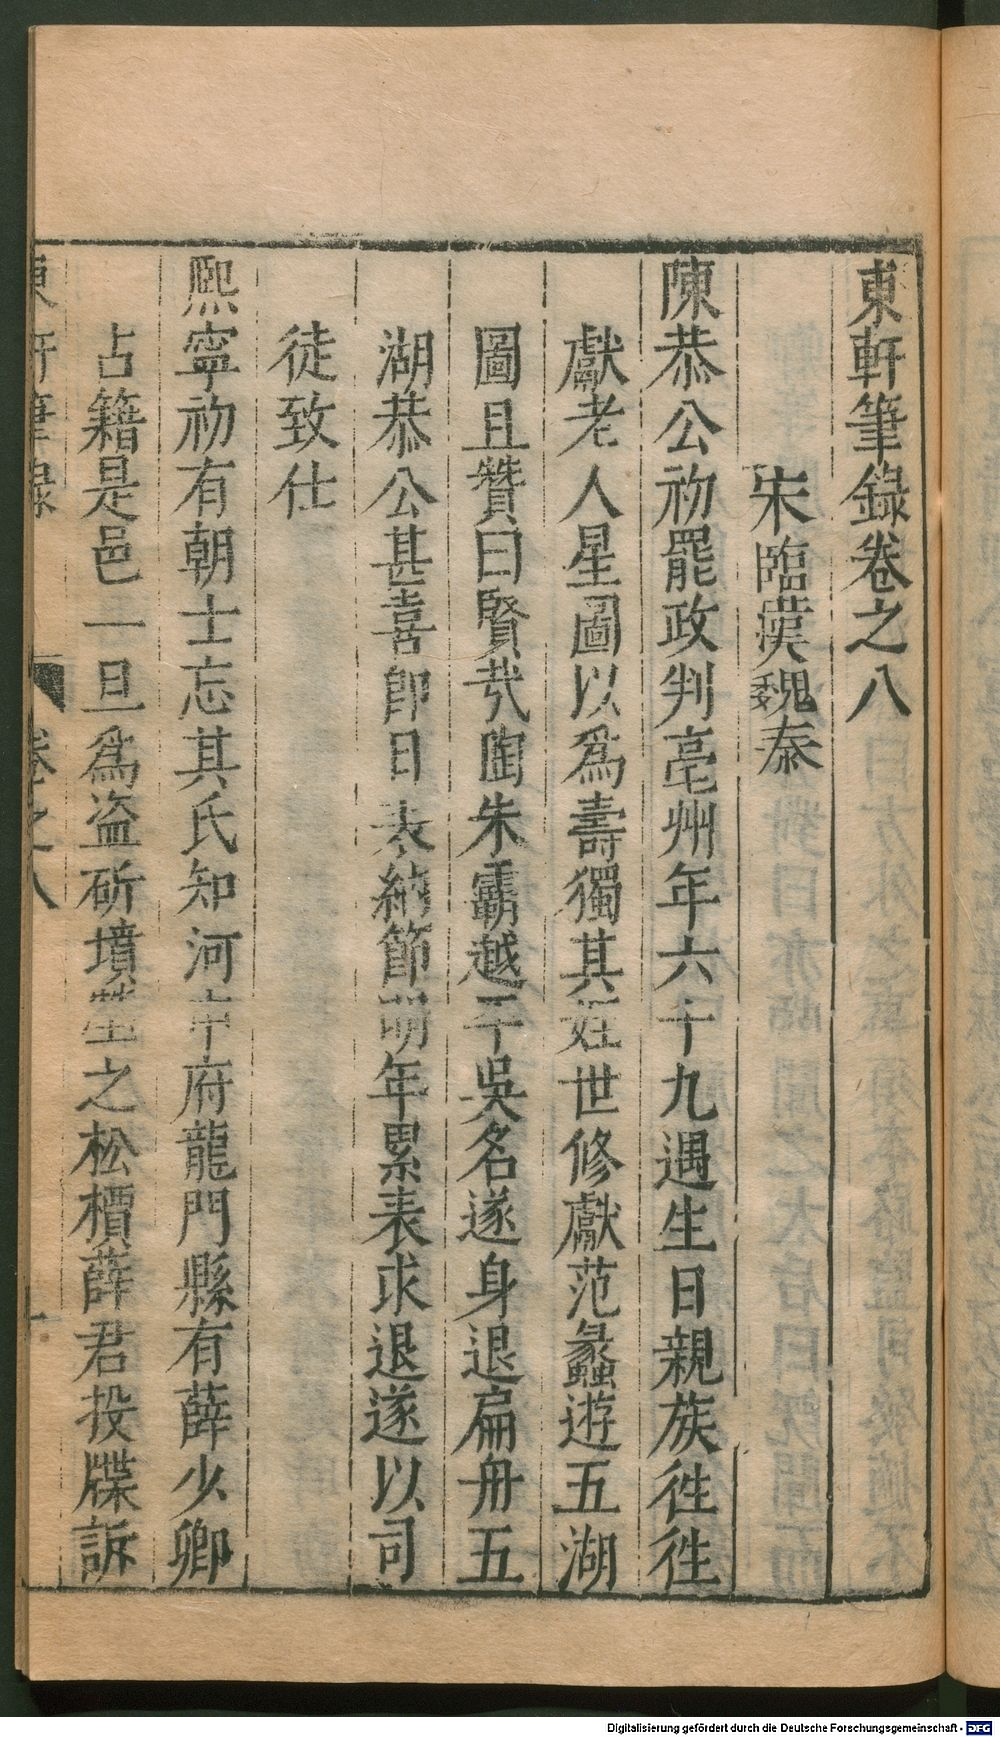 東軒筆錄卷之八
宋臨漢魏泰
陳恭公初罷政判亳州年六十九遇生日親族徃徃
獻老人星圖以爲壽獨其姪世修獻范蠡遊五湖
圖且贊曰賢哉陶朱霸越平吳名遂身退扁舟五
湖恭公甚喜卽日表納節明年累表求退遂以司
徒致仕
熙寧初有朝士忘其氏知河中府龍門縣有薛少卿
占籍是邑一旦爲盗斫墳塋之松檟薛君投牒訴
東軒筆錄 卷之八 一
Digitalisierung gefördert durch die Deutsche Forschungsgemeinschaft - DFG